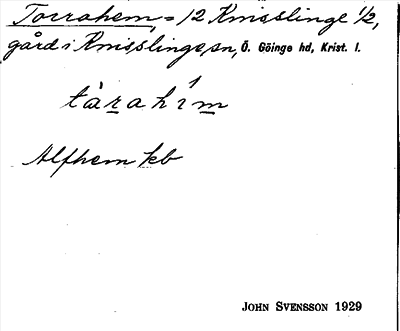 Torrahem, = 12 Knisslinge 1/2,
gård i Knisslinge sn, Ö. Göinge hd, Krist. l.
tàrahím
Alfhem kb
JOHN SVENSSON 1929